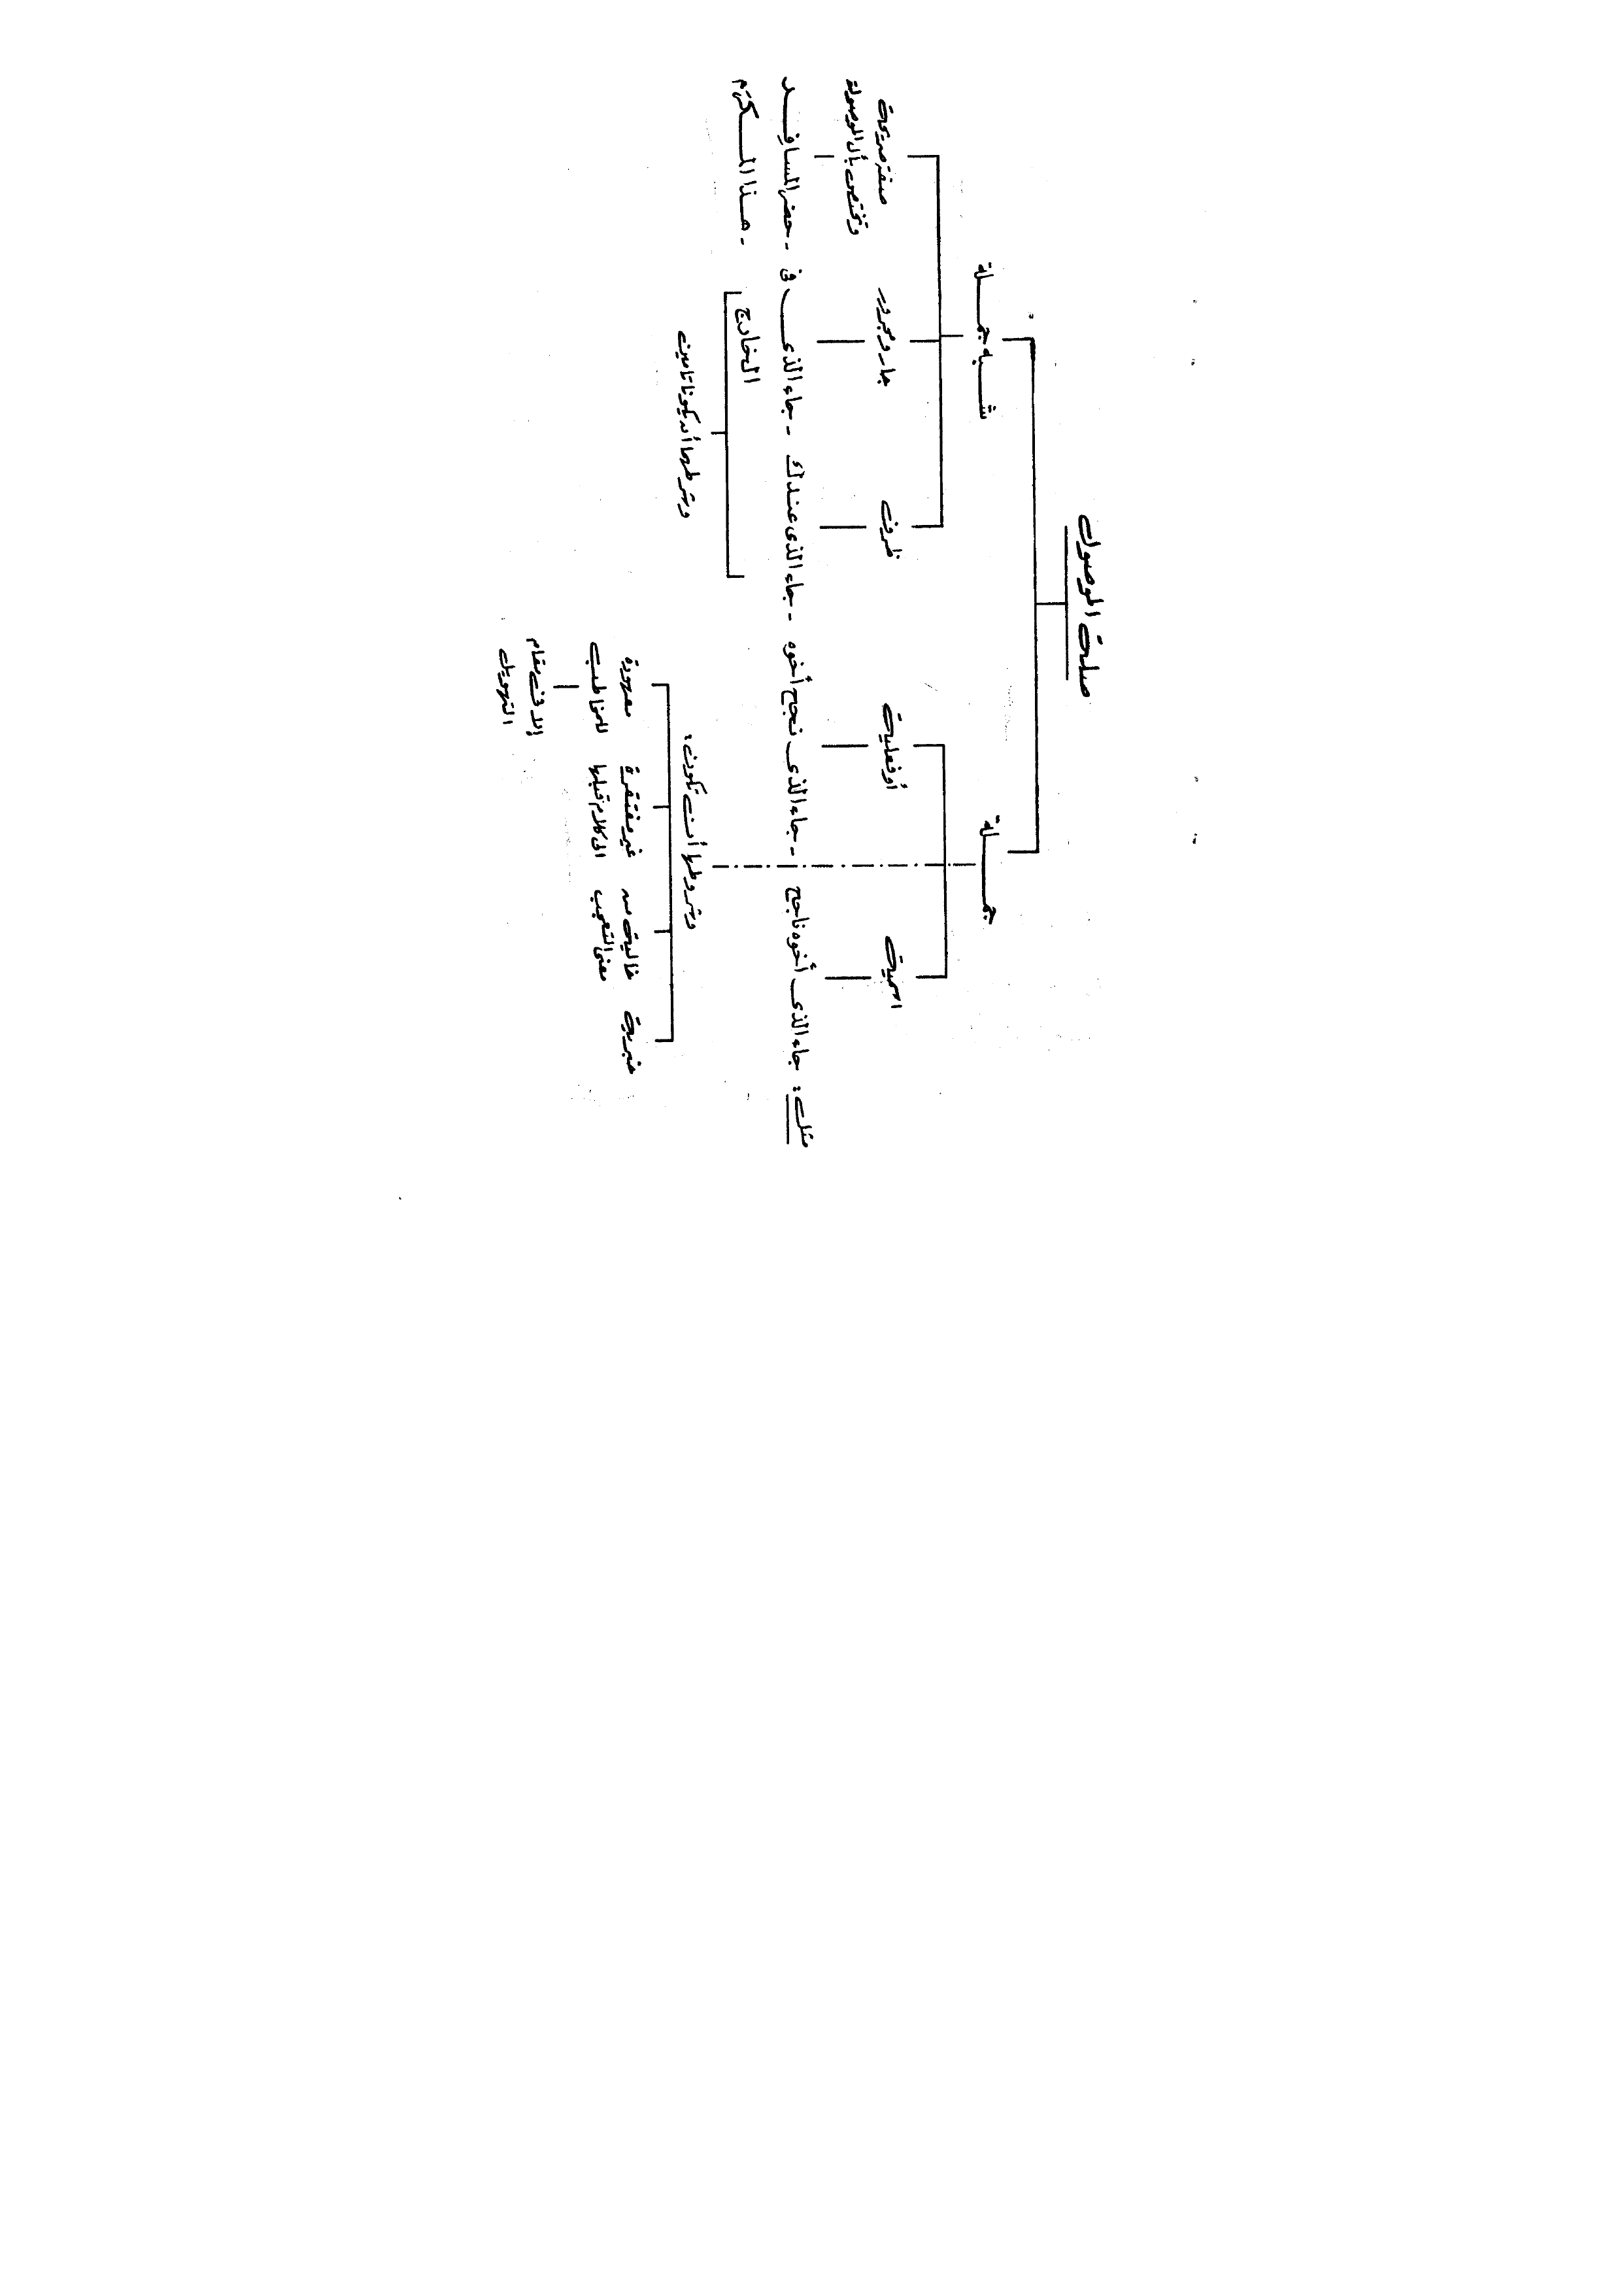 صلة الموصول
جملة
شبه جملة
اسمية
أو فعلية
ظرف
جار ومجرور
صفة صريحة
وتختص بأل الموصولة
مثل: جاء الذى أخوه ناجح - جاء الذى نجح أخوه - جاء الذى عندك - جاء الذى فى - حضر المسافر
الخارج
- هذا المكرم
وشروطها أن تكون:
وشرطهما أن يكونا تامين
خبرية
خالية من
معنى التعجب
غير مفتقرة
الى كلام قبلها
معهودة
للمخاطب
إلا فى مقام
التهويل